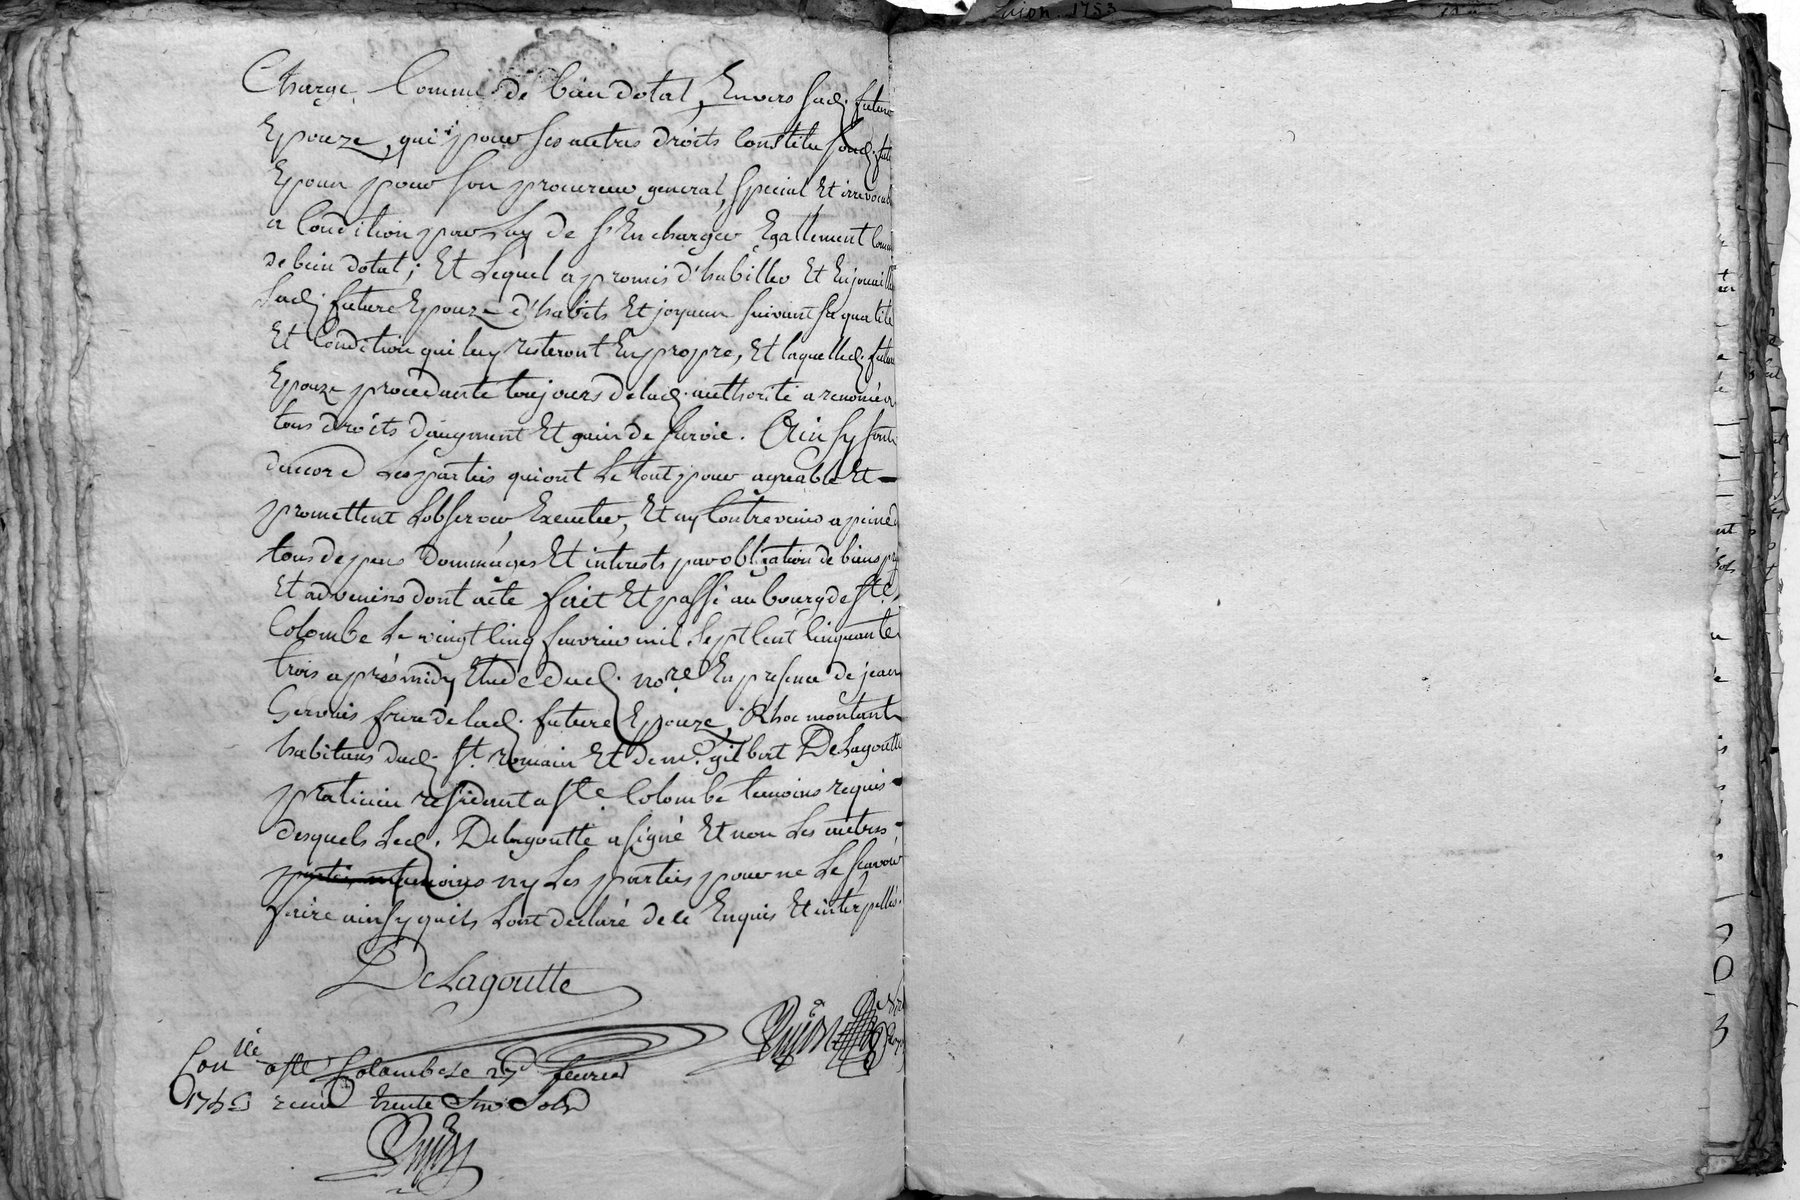 Charge Comme de bien dotal, Envers lad. future
Epouze, qui pour ses autres droits Constitue sond. fut
Epoux pour son procureur general, special Et irrevocab
a Condition par luy de s'En charger Egallement Comm
de bien dotal; Et Lequel a promis d'habiller Et Enjouailler
Lad. future Epouze d'habits Et joyaux suivant sa qualité
Et Condition qui luy resteront En propre, Et laquelled. future
Epouze procedante toujours de lad. authorité a renoncé a
tous droits d'augment Et gain de survie. Ainsy sont
d'accord Les parties qui ont Le tout pour agreable Et
promettent L'observer Executer, Et ny Contrevenir a peine d
tous depens dommages Et interests par obligation de biens p
Et advenirs dont acte fait Et passé au bourg de Ste
Colombe Le vingt Cinq fevrier mil sept Cent Cinquante
trois apres midy Etude dud. nore En presence de jean
Gervais frere de lad. future Epouze, montant
habitans dud. St. Romain Et de mr. gilbert DeLagoutte
praticien residant a Ste Colombe temoins requis
desquels Led. Delagoutte a signé Et non Les autres
temoins ny Les parties pour ne Le scavoir
faire ainsy qu'ils L'ont declaré de ce Enquis Et interpellés.
DeLagoutte
Conllé a Ste Colombe Le 27 fevrier
1753 recu trente Six Sols
Lijon 1753